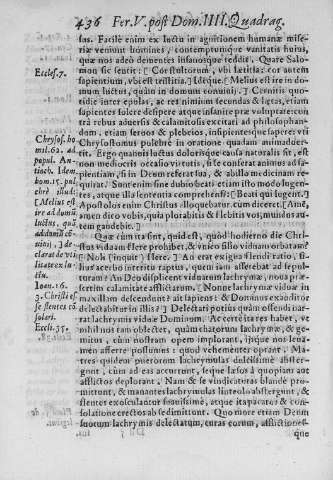 436 Fer. V. post Dom. IIII. Quadrag.
sus. Facilè enim ex luctu in agnitionem humanæ mise-
riæ veniunt homines, contemptumque vanitatis huius,
quæ nos adeò dementes insanosque reddit. Quare Salo-
mon sic sentit: [Cor stultorum, vbi lætitia: cor autem
sapientium, vbi est tristitia. Ideoque [Melius est ire in do-
mum luctus, quàm in domum conuiuij.] Cernitis quo-
tidie inter epulas, ac res nimium secundas & lætas, etiam
sapientes solere desipere atque insanire præ voluptate: con-
trà autem rebus aduersis & calamitosis excitari ad philosophan-
dum, etiam seruos & plebeios, insipientesque sapere: vti
Chrysostomus pulchrè in oratione quadam animaduer-
tit. Ergo quamuis luctus dolorisque causa naturalis sit, est
non mediocris occasio virtutis, si se conferat animus ad sa-
pientiam, si in Deum referat sua, & ab illo medicinam re-
quirat. Sunt enim sine dubio beati etiam isto modo lugen-
tes, atque illa sententia comprehensi: [Beati qui lugent.]
Apostolos enim Christus alloquebatur cùm diceret, [Amē,
amen dico vobis, quia plorabitis & flebitis vos, mundus au-
tem gaudebit.]
Quæ cùm ita sint, quid est, quòd hodierno die Chri-
stus viduam flere prohibet, & vnico filio viduam orbatam?
[Noli (inquit) flere.] An erat exigua flendi ratio, fi-
lius acerbo interitu raptus, quem iam asserebat ad sepul-
turam? An Deo displicent viduarum lachrymæ, nota præ-
sertim calamitate afflictarum? [Nonne lachrymæ viduæ in
maxillam descendunt? ait sapiens: & Dominus exauditor
delectabitur in illis?] Delectari potiùs quàm offendi nar-
rat lachrymis viduæ Dominum. Ac certè ita res habet, vt
nihil nos tam oblectet, quàm charorum lachrymæ, & ge-
mitus, cùm nostram opem implorant, ijsque nos leua-
men afferre possumus: quod vehementer oprant. Ma-
tres quidem puerorum lachrymulas dulcissimè abster-
gunt, cùm ad eas accurrunt, seque læsos à quopiam aut
afflictos deplorant. Nam & se vindicaturas blandè pro-
mittunt, & manantes lachrymulas linteolo abstergunt, &
flentes exosculantur suauissimè, atque ita pacatos & con-
solatione erectos ab se dimittunt. Quo more etiam Deum
suorum lachrymis delectatum, curas eorum, afflictiones-
que
Eccles. 7.
Chrysos. ho
mil. 62. ad
popul. An-
tioch. Idem
hom. 15. pul
chrè illud:
[Melius est
ire ad domū
luctus, quā
ad domū cō-
uiuij,] de
clarat de vti
litate ex lu-
ctu.
Ioan. 16.
3. Christi es
se flentes cō
solari.
Eccli. 35.